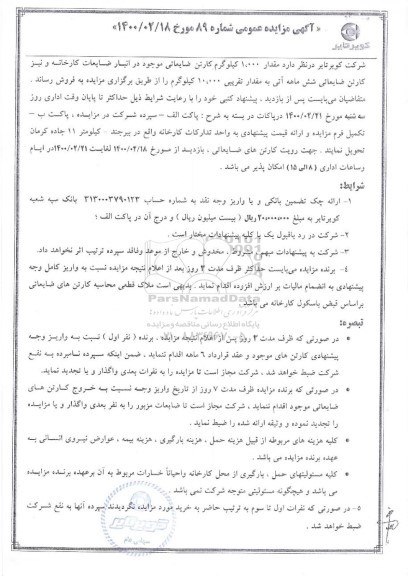 «آگهی مزایده عمومی شماره ۸۹ مورخ ۱۴۰۰/۰۲/۱۸»
کویرتایر
شرکت کویرتایر درنظر دارد مقدار ۱،۰۰۰ کیلوگرم کارتن ضایعاتی موجود در انبار ضایعات کارخانه و نیز
کارتن ضایعاتی شش ماهه آتی به مقدار تقریبی ۱۰،۰۰۰ کیلوگرم را از طریق برگزاری مزایده به فروش رساند .
متقاضیان می‌بایست پس از بازدید ، پیشنهاد کتبی خود را با رعایت شرایط ذیل حداکثر تا پایان وقت اداری روز
سه شنبه مورخ ۱۴۰۰/۰۲/۲۱ درپاکات در بسته به شرح : پاکت الف – سپرده شرکت در مزایده ، پاکت ب –
تکمیل فرم مزایده و ارائه قیمت پیشنهادی به واحد تدارکات کارخانه واقع در بیرجند - کیلومتر ۱۱ جاده کرمان
تحویل نمایند . جهت رویت کارتن های ضایعاتی ، بازدید از مورخ ۱۴۰۰/۰۲/۱۸ لغایت ۱۴۰۰/۰۲/۲۱ درایام
وساعات اداری (۸ الی ۱۵) امکان پذیر می باشد .
شرایط:
۱- ارائه چک تضمین بانکی و یا واریز وجه نقد به شماره حساب ۲۱۳۰۰۰۳۷۹۰۱۲۳ بانک سپه شعبه
کویرتایر به مبلغ ۲۰،۰۰۰،۰۰۰ ریال ( بیست میلیون ریال ) و درج آن در پاکت الف ؛
۲- شرکت در رد یاقبول یک یا کلیه پیشنهادات مختار است .
۳- شرکت به پیشنهادات مبهم، مشروط ، مخدوش و خارج از موعد وفاقد سپرده ترتیب اثر نخواهد داد.
۴- برنده مزایده می‌بایست حداکثر ظرف مدت ۳ روز بعد از اعلام نتیجه مزایده نسبت به واریز کامل وجه
پیشنهادی به انضمام مالیات بر ارزش افزوده اقدام نماید . بدیهی است ملاک قطعی محاسبه کارتن های ضایعاتی
براساس قبض باسکول کارخانه می باشد.
تبصره:
• در صورتی که ظرف مدت ۳ روز پس از اعلام نتیجه مزایده ، برنده ( نفر اول ) نسبت به واریز وجه
پیشنهادی کارتن های موجود و عقد قرارداد ۶ ماهه اقدام ننماید . ضمن اینکه سپرده نامبرده به نفع
شرکت ضبط خواهد شد ، شرکت مجاز است تا مزایده را به نفرات بعدی واگذار و یا تجدید نماید.
• در صورتی که برنده مزایده ظرف مدت ۷ روز از تاریخ واریز وجه نسبت به خروج کارتن های
ضایعاتی موجود اقدام ننماید ، شرکت مجاز است تا ضایعات مزبور را به نفر بعدی واگذار و یا مزایده
را تجدید نموده و وثیقه ارائه شده را ضبط نماید .
• کلیه هزینه های مربوطه از قبیل هزینه حمل ، هزینه بارگیری ، هزینه بیمه ، عوارض نیروی انسانی به
عهده برنده مزایده می باشد .
• کلیه مسئولیتهای حمل ، بارگیری از محل کارخانه واحیاناً خسارات مربوط به آن برعهده برنده مزایده
می باشد و هیچگونه مسئولیتی متوجه شرکت نمی باشد .
۵- در صورتی که نفرات اول تا سوم به ترتیب حاضر به خرید مورد مزایده نگردیدند سپرده آنها به نفع شرکت
ضبط خواهد شد .
ParsNamadData
پایگاه اطلاع رسانی مناقصه و مزایده